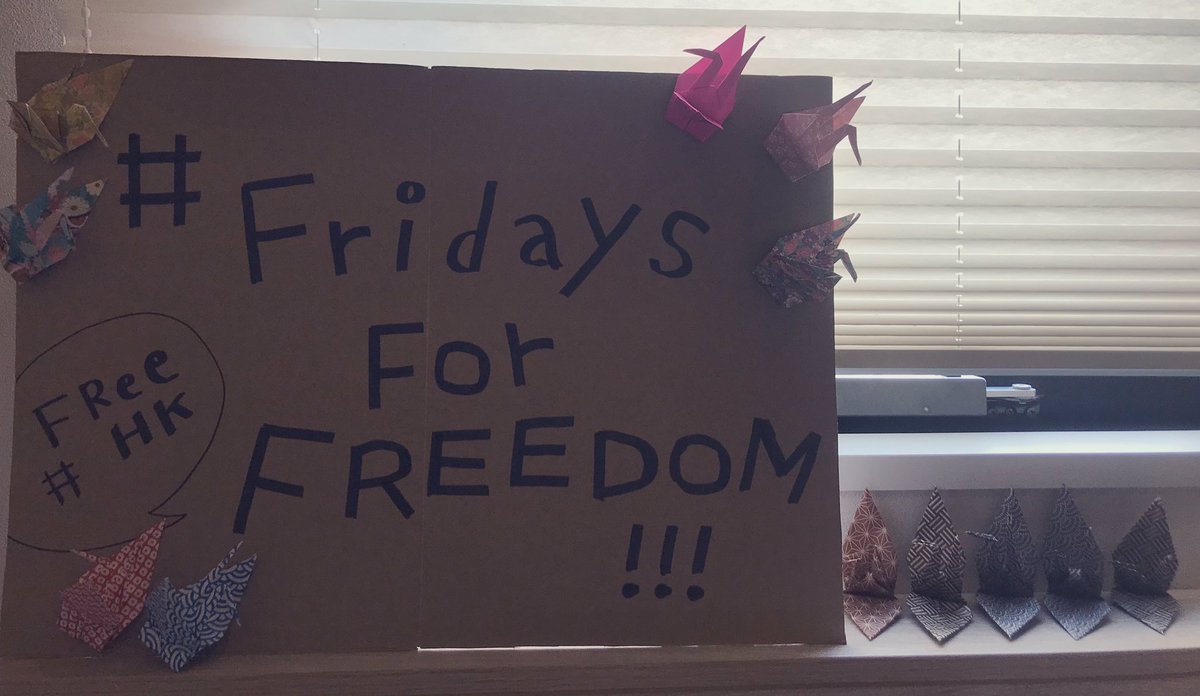 # Fridays
For
FREEDOM
!!!
FRee
# HK